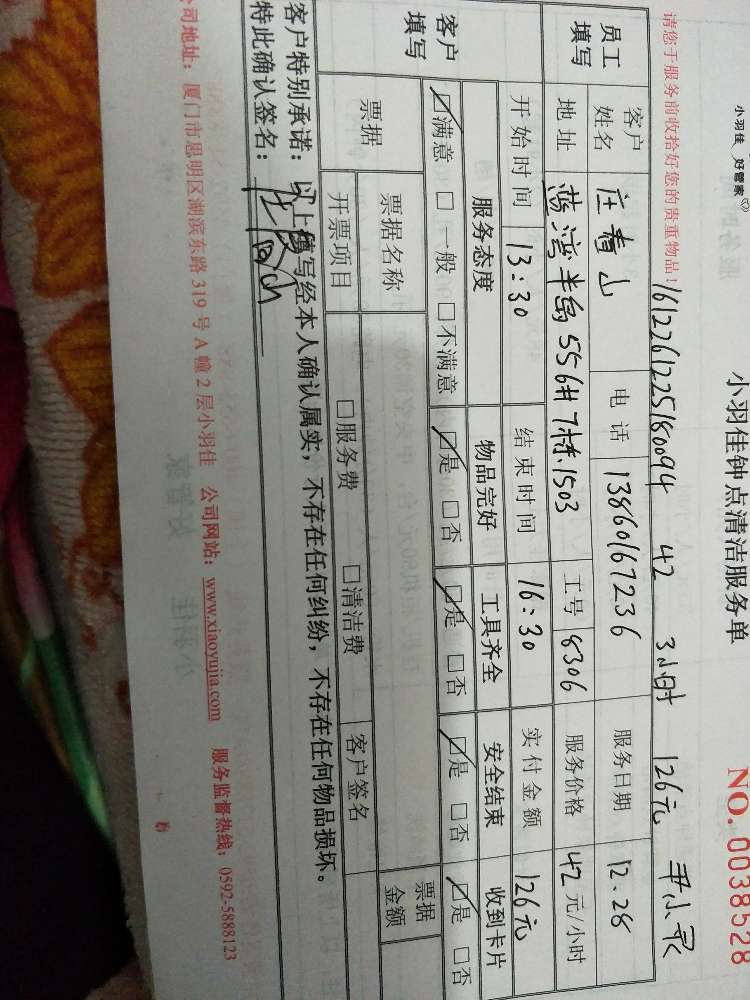 小羽佳 好管家
小羽佳钟点清洁服务单
NO. 0038528
请您于服务前收拾好您的贵重物品！
1612261225180094 42 3小时 126元
员工填写
客户姓名 庄青山 电话 13860167236 服务日期 12.28
地址 蓝湾半岛 556# 7梯1503 工号 8306 服务价格 42 元/小时
开始时间 13:30 结束时间 16:30 实付金额 126元
客户填写
服务态度 物品完好 工具齐全 安全结束 收到卡片
☑满意 □一般 □不满意 ☑是 □否 ☑是 □否 ☑是 □否 ☑是 □否
票据 票据名称 票据金额
开票项目 □服务费 □清洁费 客户签名
客户特别承诺：以上填写经本人确认属实，不存在任何纠纷，不存在任何物品损坏。
特此确认签名：
公司地址：厦门市思明区湖滨东路 319 号 A 幢 2 层小羽佳 公司网站：www.xiaoyujia.com 服务监督热线：0592-5888123